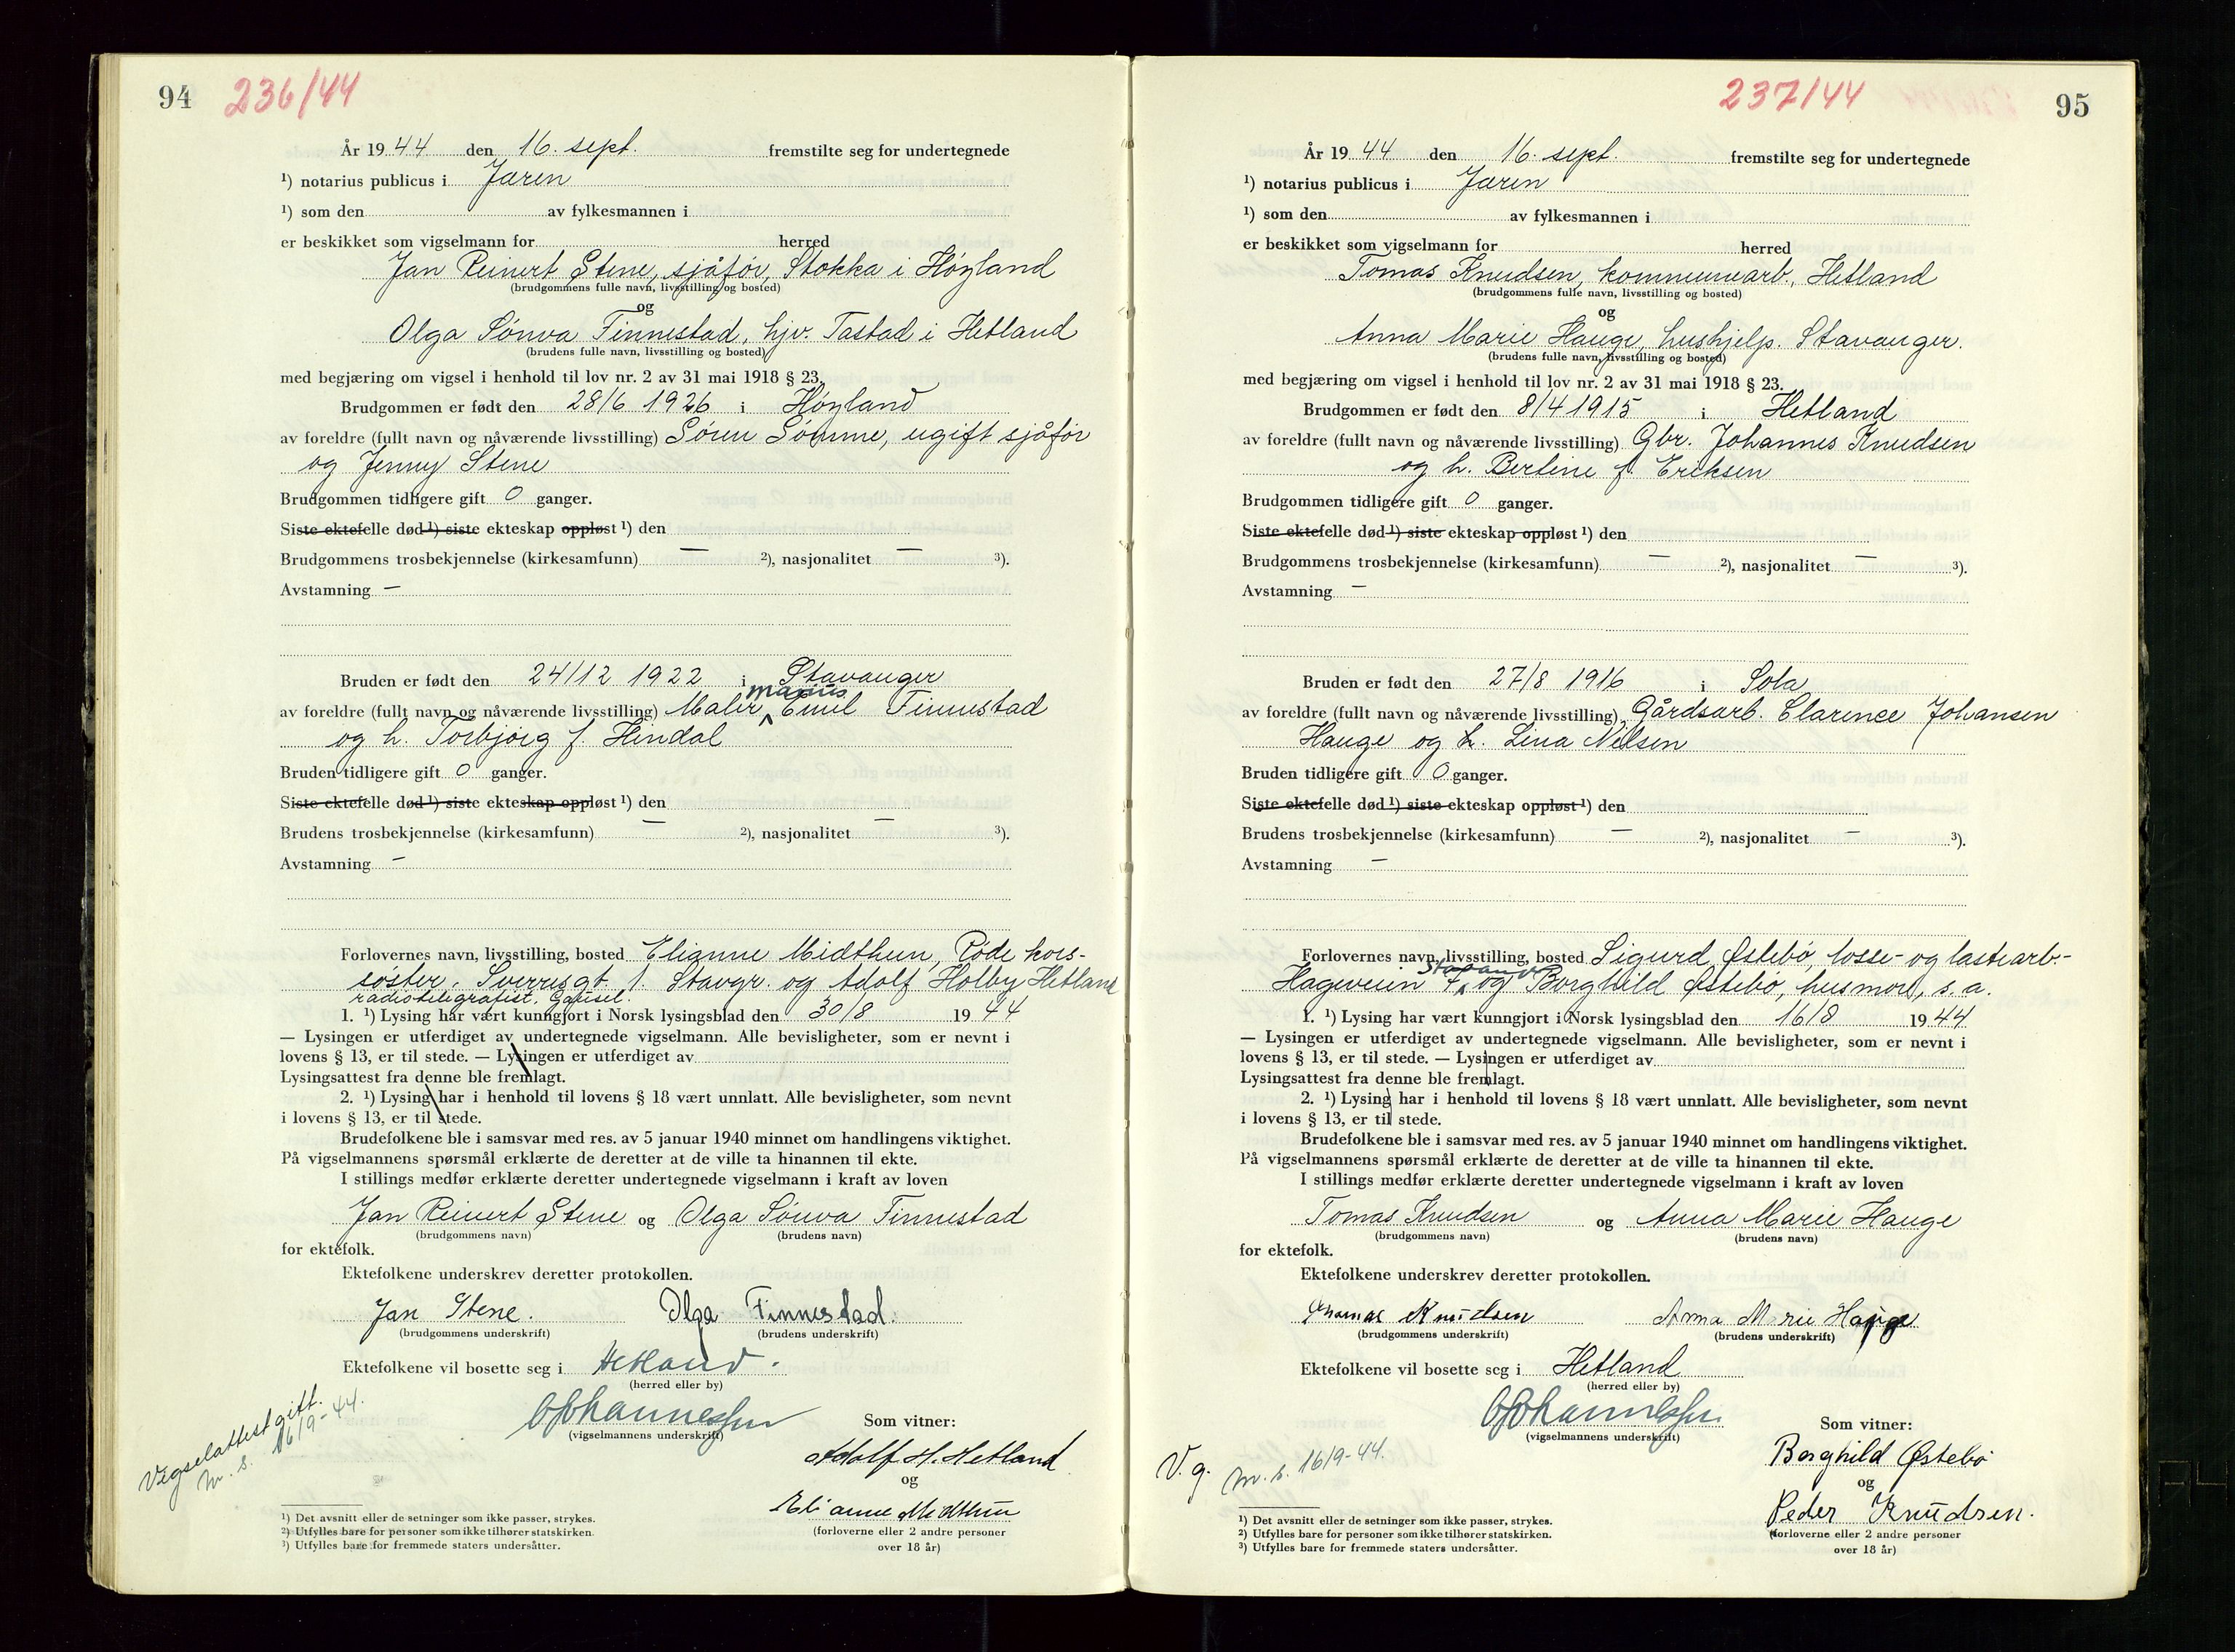 94
236/44
År 1944 den 16. sept. fremstilte seg for undertegnede
¹) notarius publicus i Jæren
¹) som den av fylkesmannen i
er beskikket som vigselmann for herred
Jan Reinert Stene, sjåför, Stokka i Höyland
(brudgommens fulle navn, livsstilling og bosted)
og
Olga Sönva Finnestad, hjv. Tastad i Hetland
(brudens fulle navn, livsstilling og bosted)
med begjæring om vigsel i henhold til lov nr. 2 av 31 mai 1918 § 23.
Brudgommen er født den 28/6 1926 i Höyland
av foreldre (fullt navn og nåværende livsstilling) Sören Sömme, ugift sjåför
og Jenny Stene
Brudgommen tidligere gift 0 ganger.
Siste ektefelle død ¹) siste ekteskap oppløst ¹) den
Brudgommens trosbekjennelse (kirkesamfunn) — ²), nasjonalitet — ³).
Avstamning —
Bruden er født den 24/12 1922 i Stavanger
av foreldre (fullt navn og nåværende livsstilling) Maler Marius Emil Finnestad
og h. Torbjörg f. Hindal
Bruden tidligere gift 0 ganger.
Siste ektefelle død ¹) siste ekteskap oppløst ¹) den
Brudens trosbekjennelse (kirkesamfunn) — ²), nasjonalitet — ³).
Avstamning —
Forlovernes navn, livsstilling, bosted Elianne Midthun, Röde kors-
söster, Sverresgt. 1. Stavgr. og Adolf Holby Hetland
radiotelegrafist, Gausel.
1. ¹) Lysing har vært kunngjort i Norsk lysingsblad den 30/8 1944
— Lysingen er utferdiget av undertegnede vigselmann. Alle bevisligheter, som er nevnt i
lovens § 13, er til stede. — Lysingen er utferdiget av
Lysingsattest fra denne ble fremlagt.
2. ¹) Lysing har i henhold til lovens § 18 vært unnlatt. Alle bevisligheter, som nevnt
i lovens § 13, er til stede.
Brudefolkene ble i samsvar med res. av 5 januar 1940 minnet om handlingens viktighet.
På vigselmannens spørsmål erklærte de deretter at de ville ta hinannen til ekte.
I stillings medfør erklærte deretter undertegnede vigselmann i kraft av loven
Jan Reinert Stene og Olga Sönva Finnestad
(brudgommens navn) (brudens navn)
for ektefolk.
Ektefolkene underskrev deretter protokollen.
Jan Stene. Olga Finnestad.
(brudgommens underskrift) (brudens underskrift)
Ektefolkene vil bosette seg i Hetland.
(herred eller by)
(vigselmannens underskrift)
Som vitner:
Adolf H. Hetland
og
Elianne Midthun
(forloverne eller 2 andre personer
over 18 år)
Vigselattest gitt.
m. s. 16/9-44.
¹) Det avsnitt eller de setninger som ikke passer, strykes.
²) Utfylles bare for personer som ikke tilhører statskirken.
³) Utfylles bare for fremmede staters undersåtter.
237/44
95
År 1944 den 16. sept. fremstilte seg for undertegnede
¹) notarius publicus i Jæren
¹) som den av fylkesmannen i
er beskikket som vigselmann for herred
Tomas Knudsen, kommunearb., Hetland
(brudgommens fulle navn, livsstilling og bosted)
og
Anna Marie Hauge, hushjelp. Stavanger.
(brudens fulle navn, livsstilling og bosted)
med begjæring om vigsel i henhold til lov nr. 2 av 31 mai 1918 § 23.
Brudgommen er født den 8/4 1915 i Hetland
av foreldre (fullt navn og nåværende livsstilling) Gbr. Johannes Knudsen
og h. Bertine f. Eriksen
Brudgommen tidligere gift 0 ganger.
Siste ektefelle død ¹) siste ekteskap oppløst ¹) den
Brudgommens trosbekjennelse (kirkesamfunn) — ²), nasjonalitet — ³).
Avstamning —
Bruden er født den 27/8 1916 i Sola
av foreldre (fullt navn og nåværende livsstilling) Gårdsarb. Clarence Johansen
Hauge og h. Lina Nilsen
Bruden tidligere gift 0 ganger.
Siste ektefelle død ¹) siste ekteskap oppløst ¹) den
Brudens trosbekjennelse (kirkesamfunn) — ²), nasjonalitet — ³).
Avstamning —
Forlovernes navn, livsstilling, bosted Sigurd Østebö, losse- og lastearb.-
Hageveien 7, Stavanger og Borghild Østebö, husmor, s. a.
1. ¹) Lysing har vært kunngjort i Norsk lysingsblad den 16/8 1944
— Lysingen er utferdiget av undertegnede vigselmann. Alle bevisligheter, som er nevnt i
lovens § 13, er til stede. — Lysingen er utferdiget av
Lysingsattest fra denne ble fremlagt.
2. ¹) Lysing har i henhold til lovens § 18 vært unnlatt. Alle bevisligheter, som nevnt
i lovens § 13, er til stede.
Brudefolkene ble i samsvar med res. av 5 januar 1940 minnet om handlingens viktighet.
På vigselmannens spørsmål erklærte de deretter at de ville ta hinannen til ekte.
I stillings medfør erklærte deretter undertegnede vigselmann i kraft av loven
Tomas Knudsen og Anna Marie Hauge
(brudgommens navn) (brudens navn)
for ektefolk.
Ektefolkene underskrev deretter protokollen.
Thomas Knudsen Anna Marie Hauge
(brudgommens underskrift) (brudens underskrift)
Ektefolkene vil bosette seg i Hetland
(herred eller by)
(vigselmannens underskrift)
Som vitner:
Borghild Østebö
og
Peder Knudsen.
(forloverne eller 2 andre personer
over 18 år)
V. g. m. s. 16/9-44.
¹) Det avsnitt eller de setninger som ikke passer, strykes.
²) Utfylles bare for personer som ikke tilhører statskirken.
³) Utfylles bare for fremmede staters undersåtter.